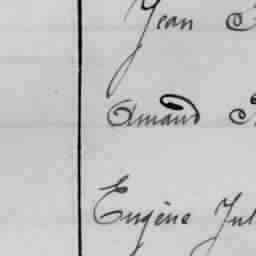 Jean
Amand
Eugène Jul